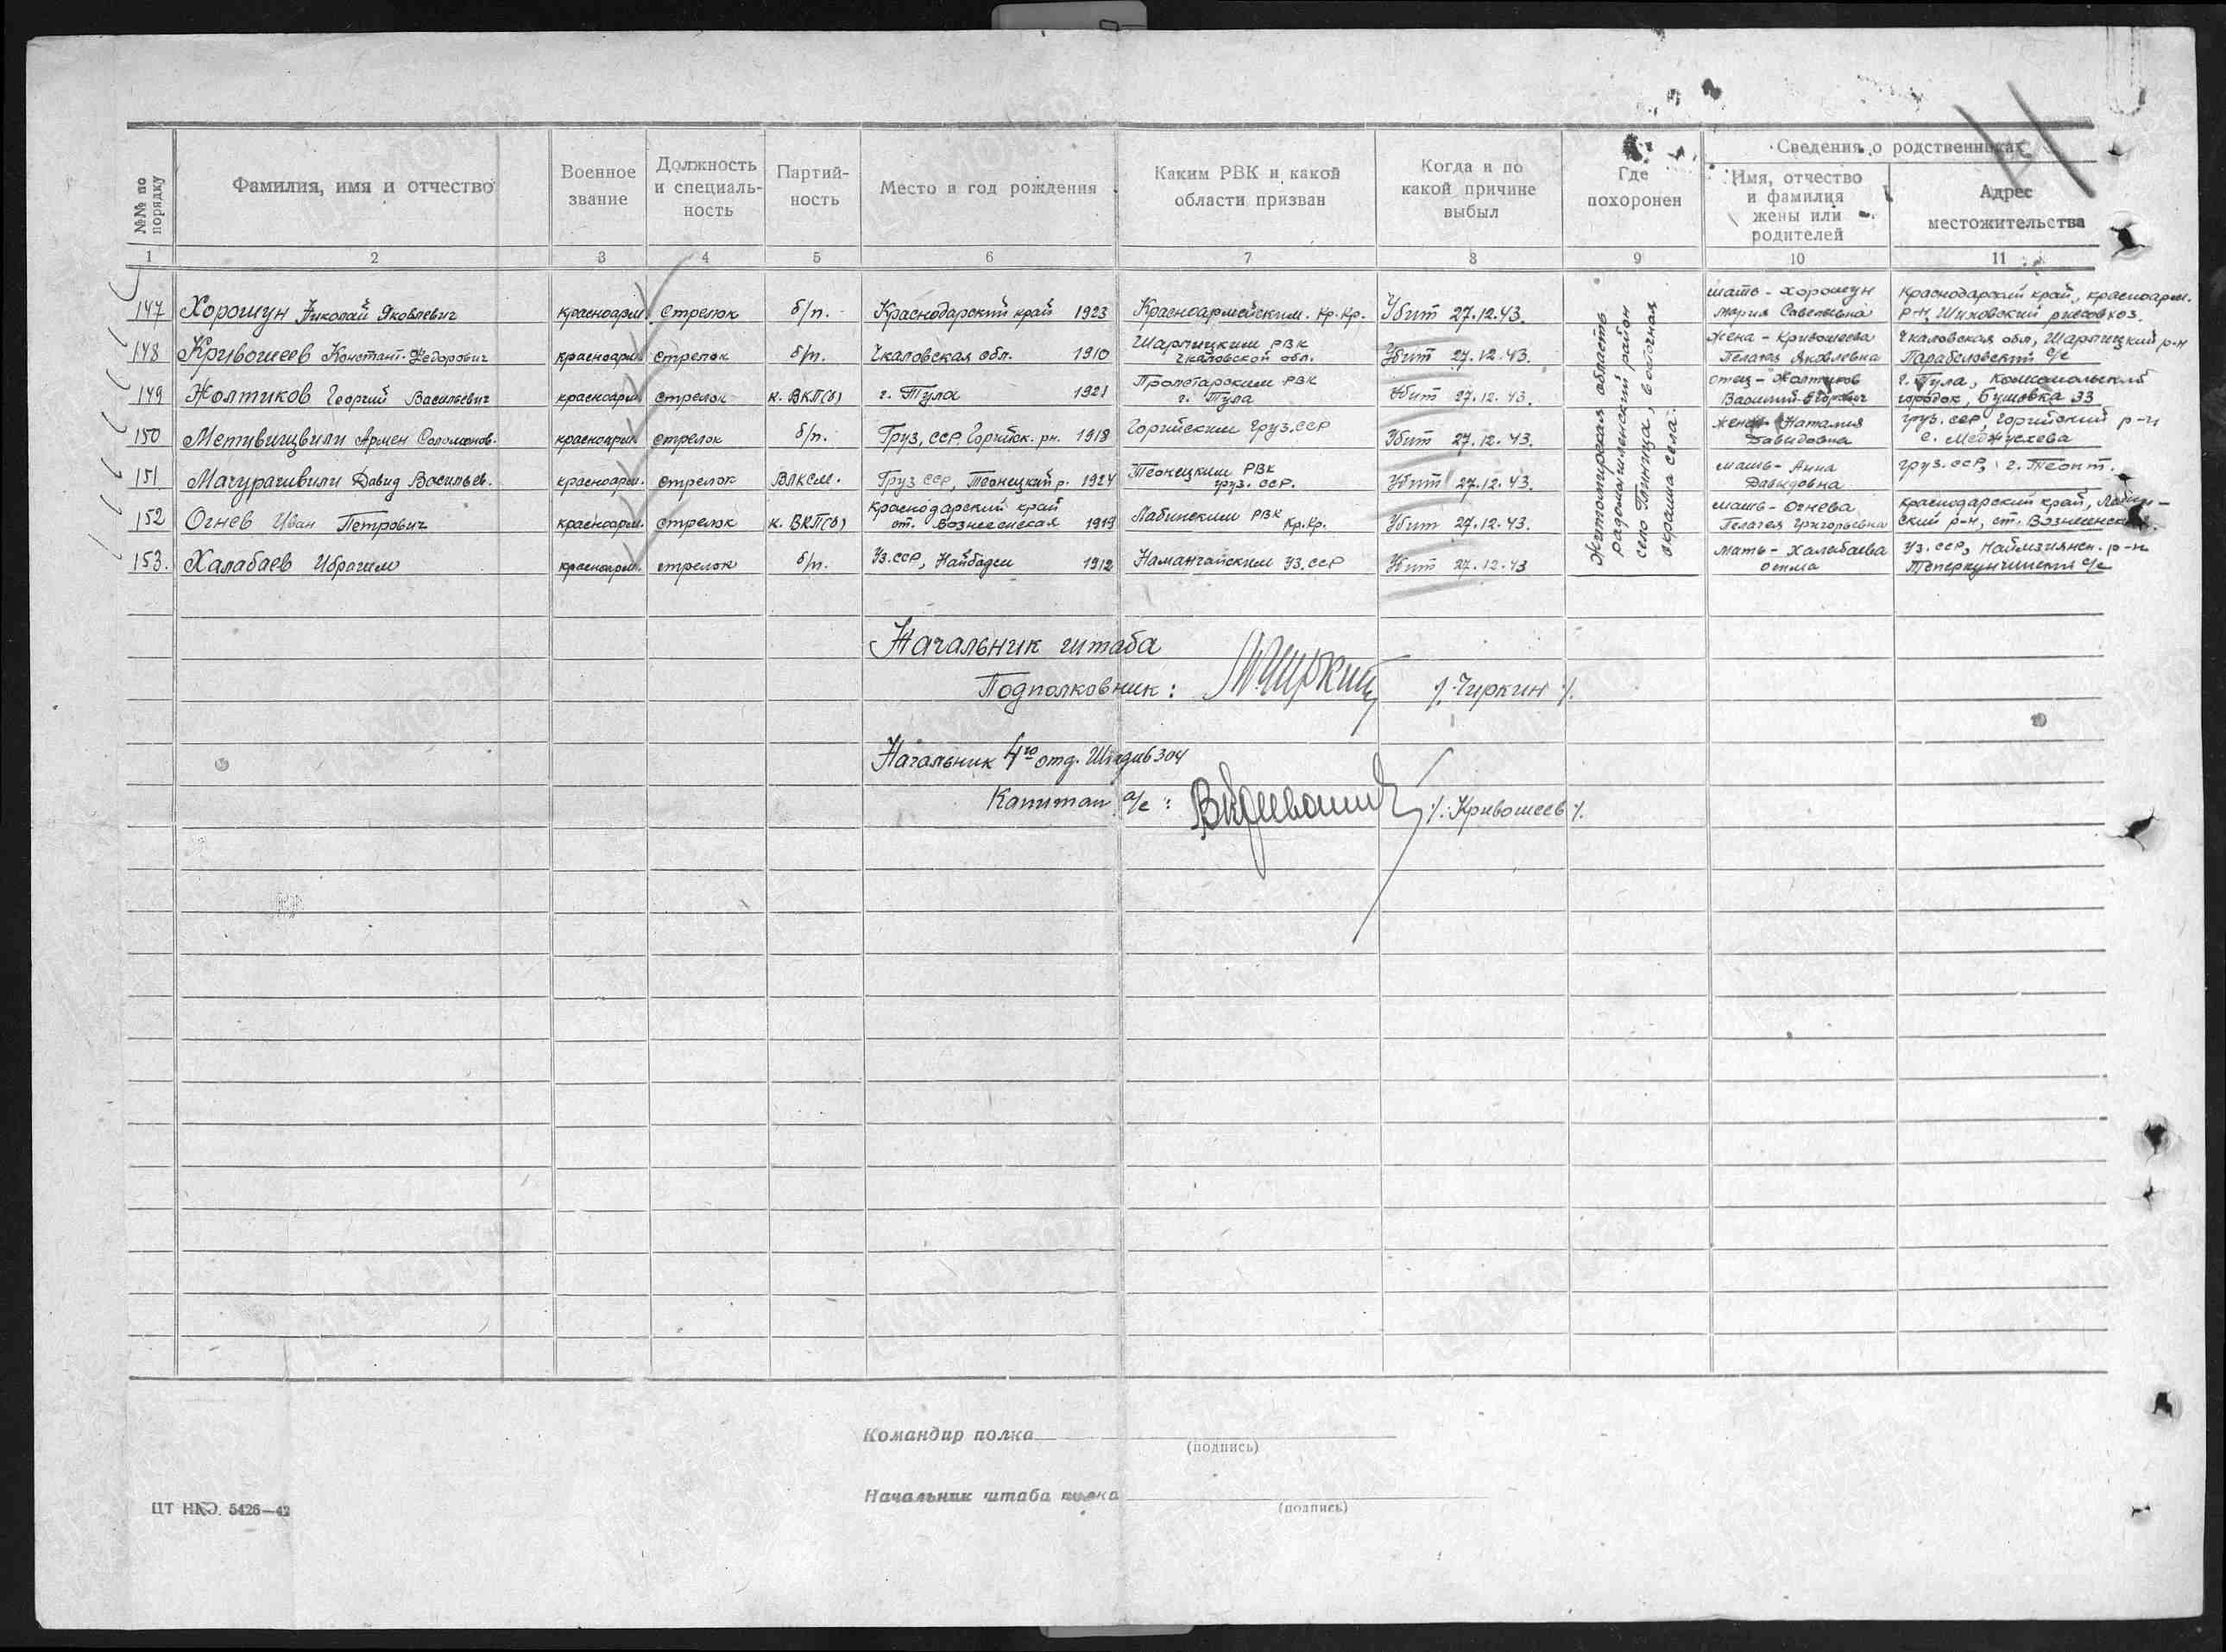 №№ по порядку
Фамилия, имя и отчество
Военное звание
Должность и специаль-
ность
Партий-
ность
Место и год рождения
Каким РВК и какой области призван
Когда и по какой причине выбыл
Где похоронен
Сведения о родственниках
Имя, отчество и фамилия жены или родителей
Адрес местожительства
1 2 3 4 5 6 7 8 9 10 11
147 Хорошун Николай Яковлевич красноарм. Стрелок б/п. Краснодарский край 1923 Красноармейским. Кр.Кр. Убит 27.12.43. мать - Хорошун Мария Савельевна Краснодарский край, красноарм. р-н, рисовхоз.
148 Кривошеев Констант. Федорович красноарм. стрелок б/п. Чкаловская обл. 1910 Шарлицким РВК Чкаловской обл. Убит 27.12.43. жена - Кривошеева Пелагея Яковлевна Чкаловская обл, Шарлицкий р-н с/с
149 Жолтиков Георгий Васильевич красноарм. стрелок к. ВКП(б) г. Тула 1921 Пролетарским РВК г. Тула Убит 27.12.43. отец - Жолтиков Василий г. Тула, Комсомольский городок, 33
150 Метивишвили Армен Соломонов. красноарм. стрелок б/п. Груз. ССР. Горийск. рн. 1918 Горийским Груз.ССР Убит 27.12.43. жена Наталия Давидовна Груз. ССР, Горийский р-н с. Меджусхева
151 Мачурашвили Давид Васильев. красноарм. стрелок ВЛКСМ. Груз ССР, 1924 РВК Груз. ССР. Убит 27.12.43. мать - Анна Давидовна Груз. ССР,
152 Огнев Иван Петрович красноарм. стрелок к. ВКП(б) Краснодарский край ст. Вознесенская 1919 Лабинским РВК Кр.Кр. Убит 27.12.43. мать - Огнева Пелагея Григорьевна Краснодарский край, Лабин-
ский р-н, ст. Вознесенская.
153. Халабаев Ибрагим красноарм. стрелок б/п. Уз.ССР, 1912 Наманганским Уз. ССР Убит 27.12.43 мать - Халабаева Уз. ССР, р-н с/с
Житомирская область
радомышленский район
село Глиница, восточная
окраина села.
Начальник штаба
Подполковник: /. Чиркин /.
Начальник 4го отд. Штадив 304
Капитан а/с: /. Кривошеев /.
Командир полка
(подпись)
Начальник штаба полка
(подпись)
ЦТ НКО. 5426—42